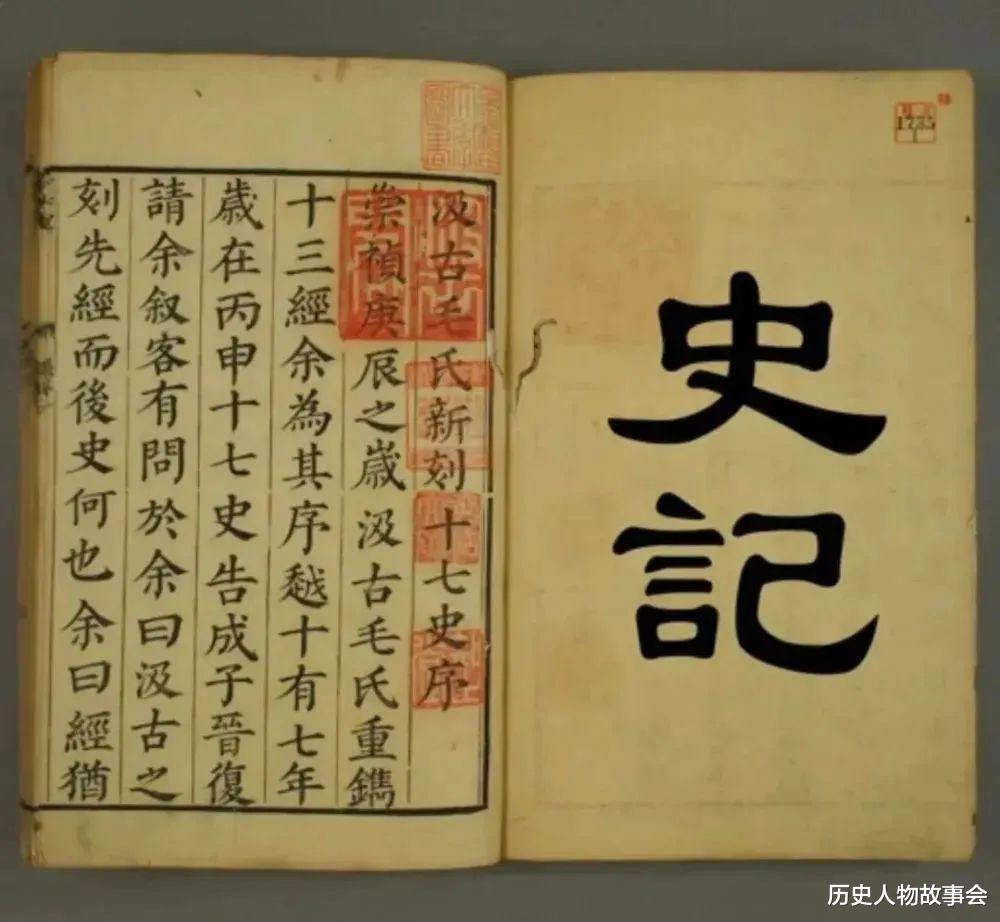 史記
1735
1
汲古毛氏新刻十七史序
崇禎庚辰之歲汲古毛氏重鐫
十三經余為其序越十有七年
歲在丙申十七史告成子晉復
請余叙客有問於余曰汲古之
刻先經而後史何也余曰經猶
历史人物故事会